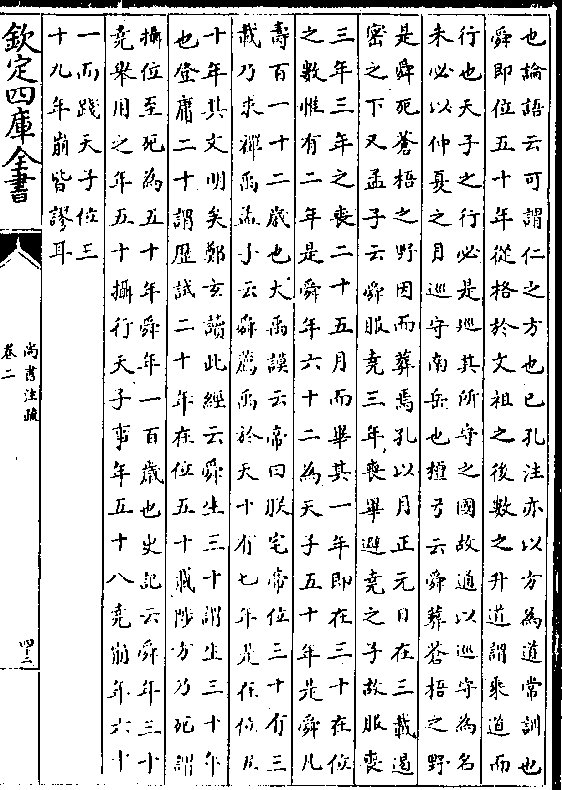 也論語云可謂仁之方也已孔注亦以方為道常訓也
舜即位五十年從格於文祖之後數之升道謂乘道而
行也天子之行必是巡其所守之國故道以巡守為名
未必以仲夏之月巡守南岳也檀弓云舜葬蒼梧之野
是舜死蒼梧之野因而葬焉孔以月正元日在三載遏
密之下又孟子云舜服堯三年喪畢避堯之子故服喪
三年三年之喪二十五月而畢其一年即在三十在位
之數惟有二年是舜年六十二為天子五十年是舜凡
壽百一十二歲也大禹謨云帝曰朕宅帝位三十有三
載乃求禪禹孟子云舜薦禹於天十有七年是在位五
十年其文明矣鄭玄讀此經云舜生三十謂生三十年
也登庸二十謂歷試二十年在位五十載陟方乃死謂
攝位至死為五十年舜年一百歲也史記云舜年三十
堯舉用之年五十攝行天子事年五十八堯崩年六十
一而踐天子位三
十九年崩皆謬耳
欽定四庫全書
尚書注疏
卷二
四十三